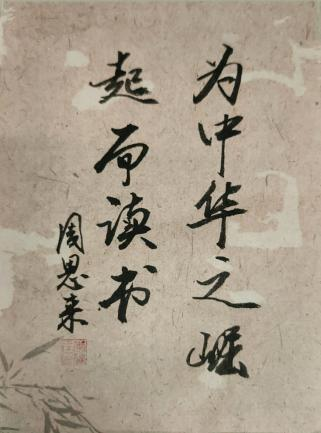 为中华之崛
起而读书
周恩来